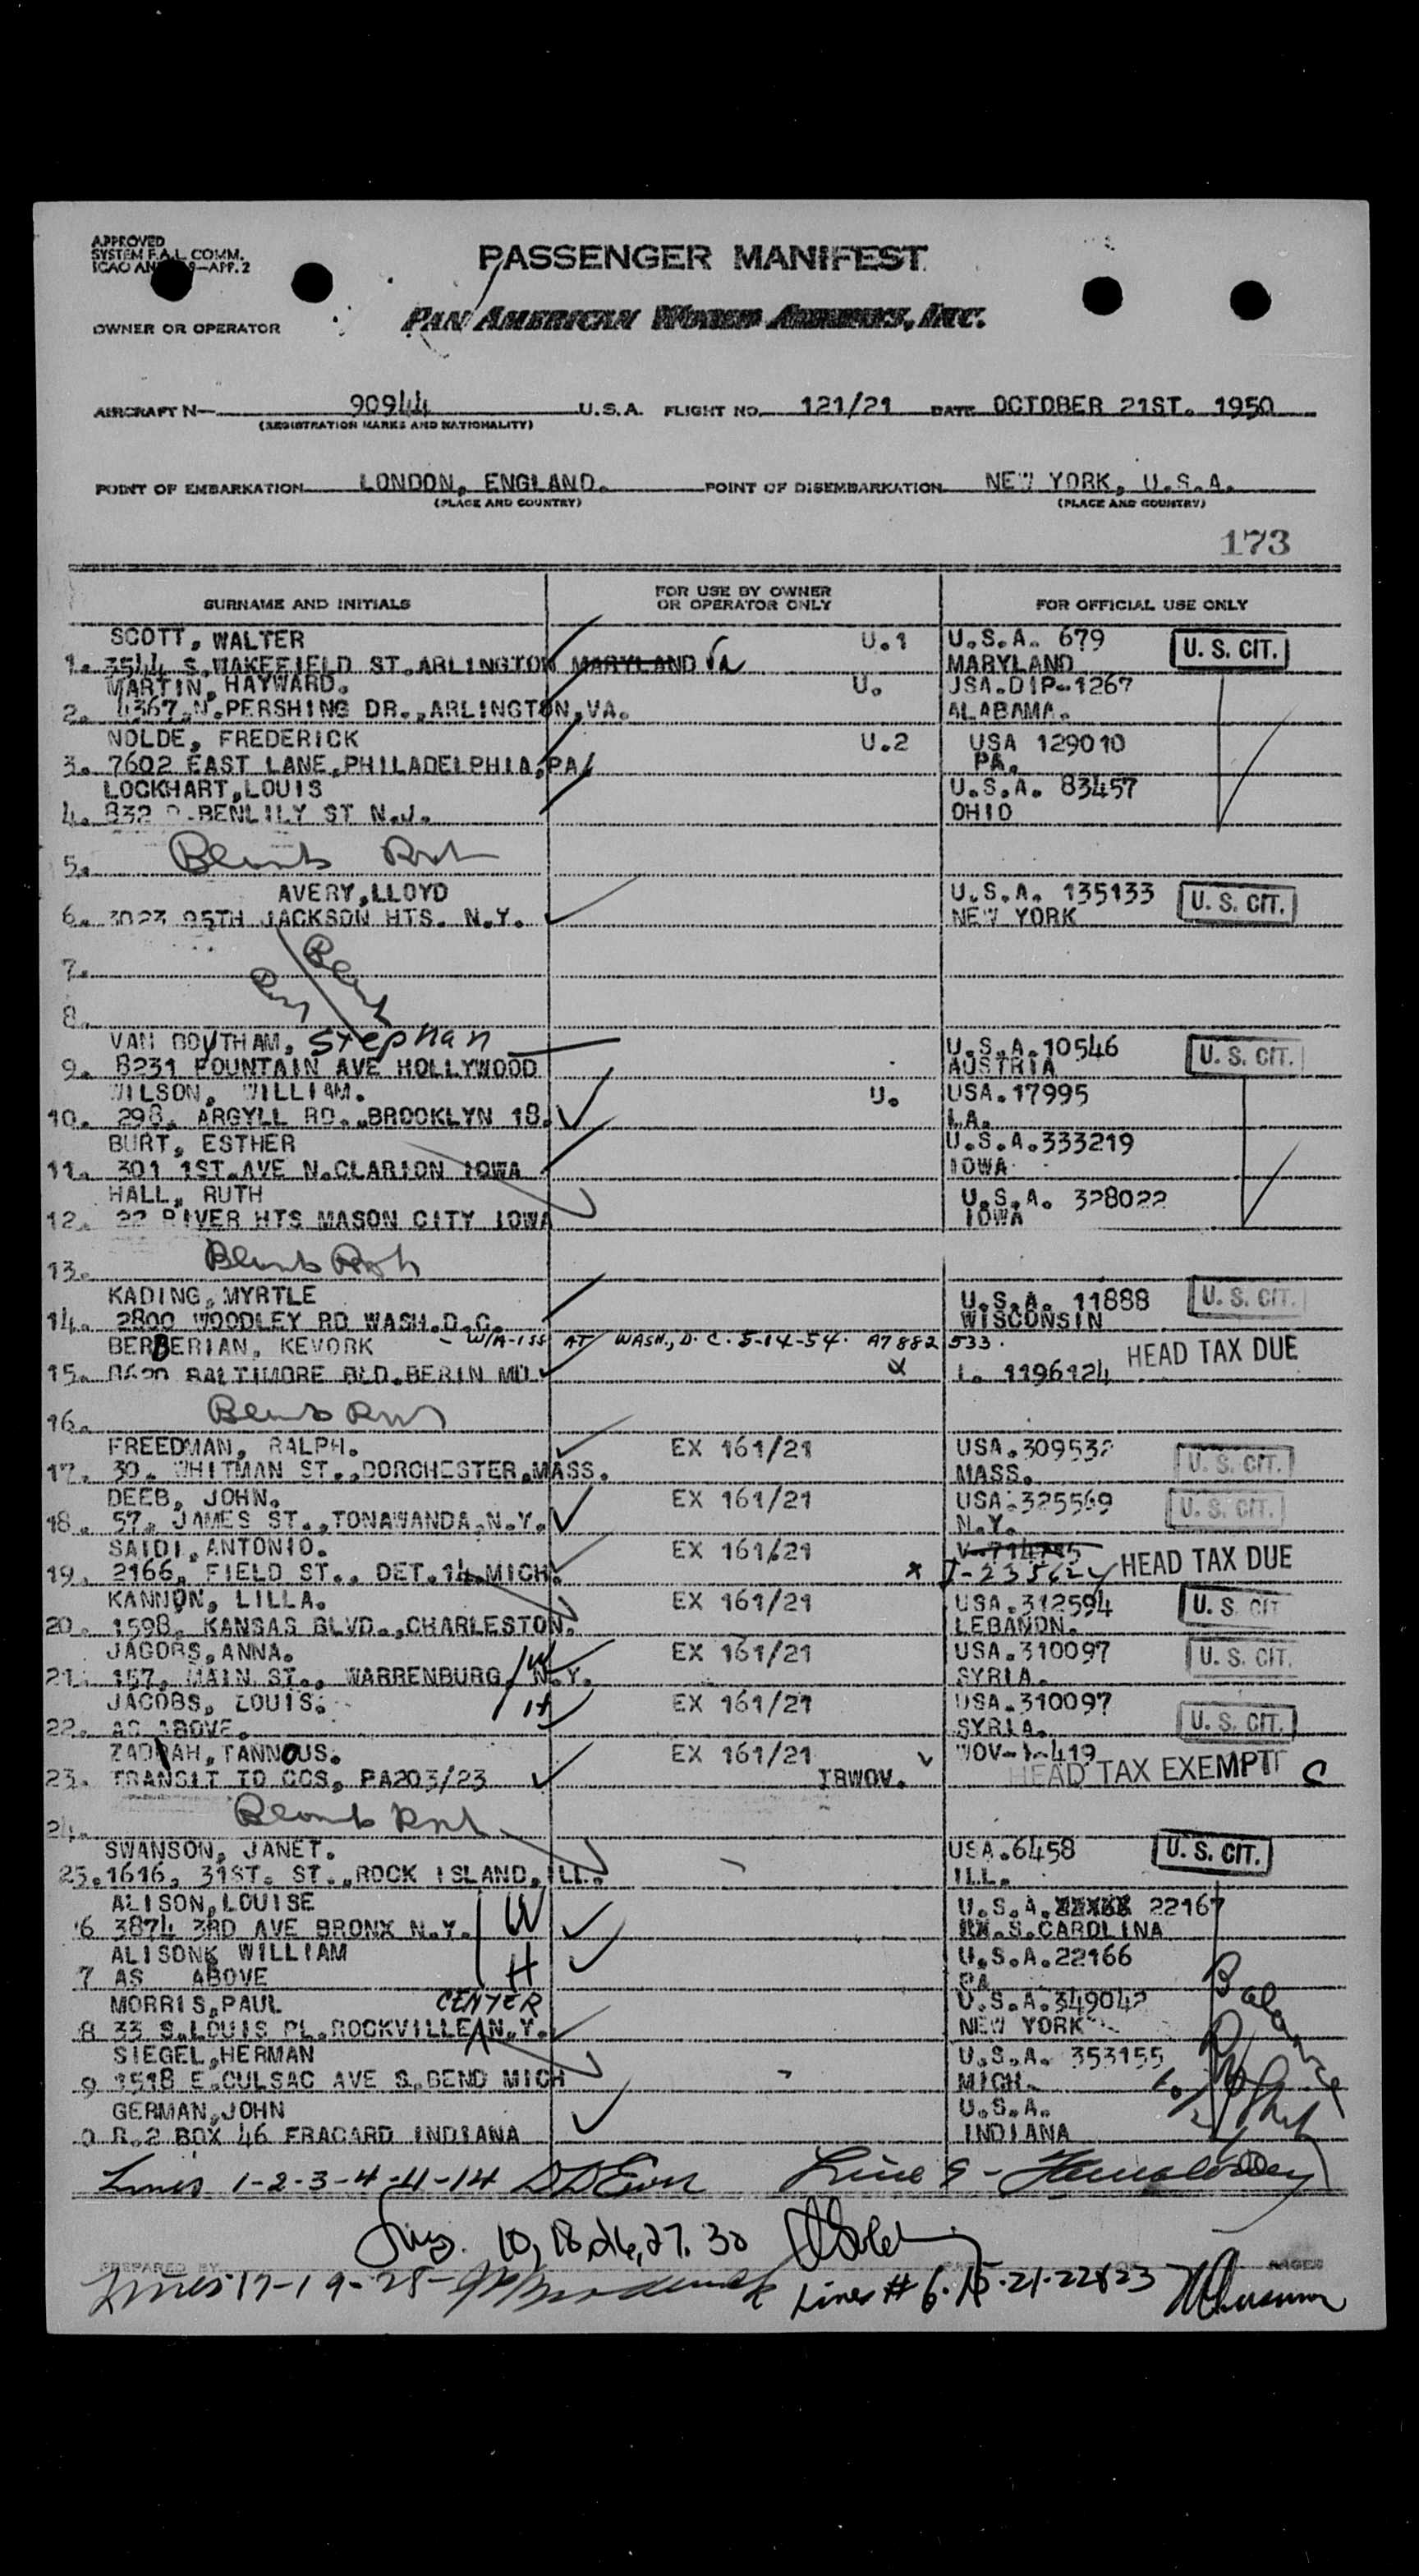 APPROVED
SYSTEM F.A.L. COMM.
ICAO AN 9—APP. 2
PASSENGER MANIFEST
OWNER OR OPERATOR
PAN AMERICAN WORLD AIRWAYS, INC.
AIRCRAFT N— 90944 U.S.A. FLIGHT NO. 121/21 DATE OCTOBER 21ST. 1950
(REGISTRATION MARKS AND NATIONALITY)
POINT OF EMBARKATION LONDON, ENGLAND. POINT OF DISEMBARKATION NEW YORK, U.S.A.
(PLACE AND COUNTRY) (PLACE AND COUNTRY)
173
SURNAME AND INITIALS FOR USE BY OWNER OR OPERATOR ONLY FOR OFFICIAL USE ONLY
SCOTT, WALTER U.1 U.S.A. 679 U. S. CIT.
1. 3544 S.WAKEFIELD ST.ARLINGTON MARYLAND Va MARYLAND
MARTIN, HAYWARD. U. USA.DIP-1267
2. 4367.N.PERSHING DR.,ARLINGTON,VA. ALABAMA.
NOLDE, FREDERICK U.2 USA 129010
3. 7602 EAST LANE,PHILADELPHIA,PA. PA.
LOCKHART,LOUIS U.S.A. 83457
4. 832 BENLILY ST N.J. OHIO
5. Blank
AVERY,LLOYD U.S.A. 135133 U. S. CIT.
6. 3023 95TH JACKSON HTS. N.Y. NEW YORK
7. Blank
8.
VAN BOUTHAM, Stephan U.S.A.10546 U. S. CIT.
9. 8231 FOUNTAIN AVE HOLLYWOOD AUSTRIA
WILSON, WILLIAM. U. USA.17995
10. 298, ARGYLL RD.,BROOKLYN 18. LA.
BURT, ESTHER U.S.A.333219
11. 301 1ST.AVE N.CLARION IOWA IOWA
HALL, RUTH U.S.A. 328022
12. 22 RIVER HTS MASON CITY IOWA IOWA
13. Blank
KADING,MYRTLE U.S.A. 11888 U. S. CIT.
14. 2800 WOODLEY RD WASH.D.C. WISCONSIN
BERBERIAN, KEVORK - W/A-155 AT WASH., D.C. 5-14-54. A7882 533. HEAD TAX DUE
15. BALTIMORE BLD.BERIN MD x I. 1196124
16. Blank
FREEDMAN, RALPH. EX 161/21 USA.309532 U. S. CIT.
17. 30. WHITMAN ST.,DORCHESTER,MASS. MASS.
DEEB, JOHN. EX 161/21 USA.325569 U. S. CIT.
18. 57, JAMES ST.,TONAWANDA,N.Y. N.Y.
SAIDI,ANTONIO. EX 161/21 HEAD TAX DUE
19. 2166, FIELD ST., DET.14.MICH. x
KANNON, LILLA. EX 161/21 USA.312594 U. S. CIT
20. 1598, KANSAS BLVD.,CHARLESTON. LEBANON.
JACOBS,ANNA. W EX 161/21 USA.310097 U. S. CIT.
21. 157, MAIN ST., WARRENBURG, N.Y. SYRIA.
JACOBS, LOUIS. H EX 161/21 USA.310097 U. S. CIT.
22. AS ABOVE. SYRIA.
ZADRAH, TANNOUS. EX 161/21 WOV-1-419
23. TRANSIT TO CCS, PA203/23 TRWOV. HEAD TAX EXEMPT C
24. Blank
SWANSON, JANET. USA.6458 U. S. CIT.
25.1616, 31ST. ST.,ROCK ISLAND,ILL. ILL.
ALISON,LOUISE W U.S.A. 22167
6 3874 3RD AVE BRONX N.Y. S.CAROLINA
ALISON, WILLIAM H U.S.A.22166
7 AS ABOVE PA
MORRIS,PAUL CENTER U.S.A.349042
8 33 S.LOUIS PL.ROCKVILLE N.Y. NEW YORK
SIEGEL,HERMAN U.S.A. 353155
9 1518 E.CULSAC AVE S.BEND MICH MICH.
GERMAN,JOHN U.S.A.
0 R.2 BOX 46 FRACARD INDIANA INDIANA
Balance
Lines 1-2-3-4-11-14 Line 9 -
10, 18, 26, 27. 30
PREPARED BY PAGES
Lines 17-19-25- Lines # 6.15.21.22&23